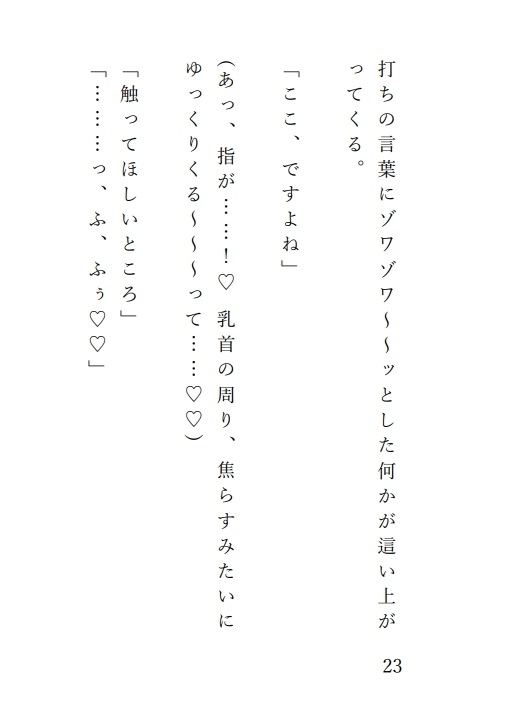 打ちの言葉にゾワゾワ～～ッとした何かが這い上が
ってくる。
「ここ、ですよね」
(あっ、指が……！♡ 乳首の周り、焦らすみたいに
ゆっくりくる～～～って……♡♡)
「触ってほしいところ」
「………っ、ふ、ふぅ♡♡」
23